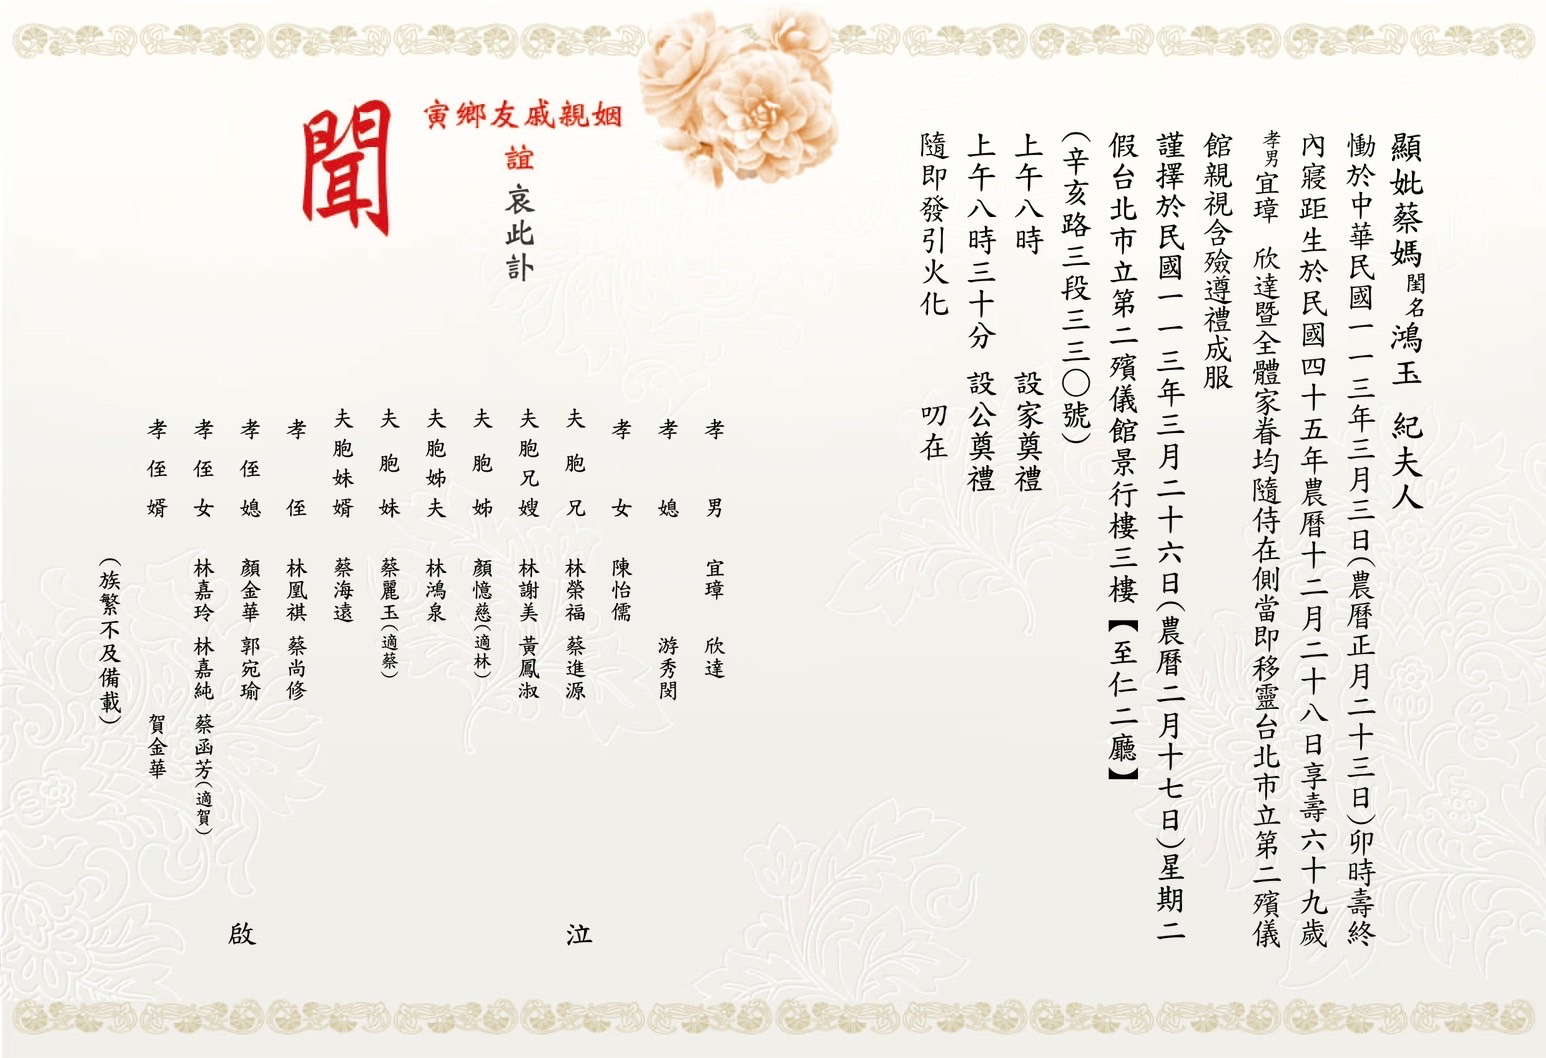 顯妣蔡媽閨名鴻玉 紀夫人
慟於中華民國一一三年三月三日(農曆正月二十三日)卯時壽終
內寢距生於民國四十五年農曆十二月二十八日享壽六十九歲
孝男宜璋 欣達暨全體家眷均隨侍在側當即移靈台北市立第二殯儀
館親視含殮遵禮成服
謹擇於民國一一三年三月二十六日(農曆二月十七日)星期二
假台北市立第二殯儀館景行樓三樓【至仁二廳】
(辛亥路三段三三〇號)
上午八時 設家奠禮
上午八時三十分 設公奠禮
隨即發引火化 叨在
姻親戚友鄉寅
誼哀此訃
聞
孝男 宜璋 欣達
孝媳 游秀閔
孝女 陳怡儒
夫胞兄 林榮福 蔡進源
夫胞兄嫂 林謝美 黃鳳淑
夫胞姊 顏憶慈(適林)
夫胞姊夫 林鴻泉
夫胞妹 蔡麗玉(適蔡)
夫胞妹婿 蔡海遠
孝侄 林凰祺 蔡尚修
孝侄媳 顏金華 郭宛瑜
孝侄女 林嘉玲 林嘉純 蔡函芳(適賀)
孝侄婿 賀金華
(族繁不及備載)
泣
啟